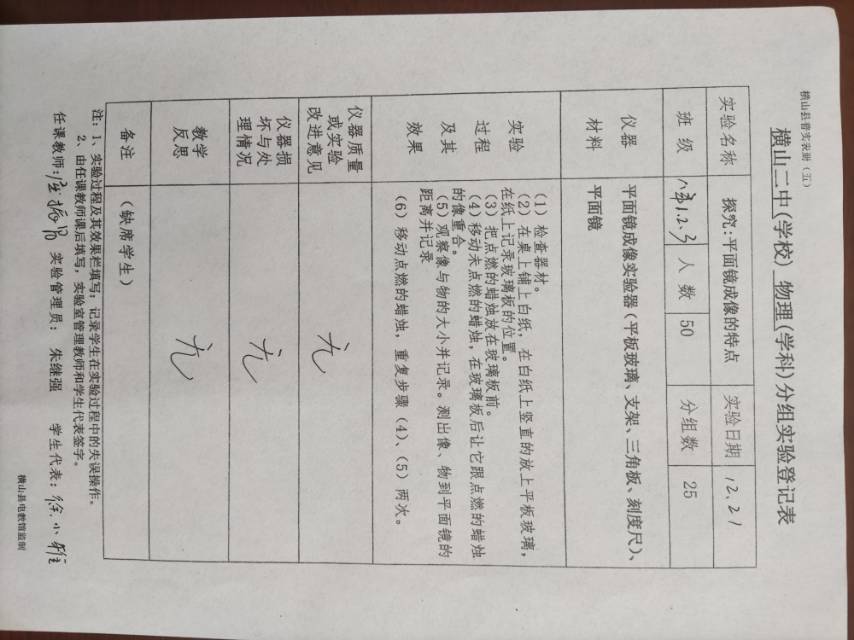 横山县普实表册（五）
横山二中(学校) 物理(学科)分组实验登记表
实验名称 探究:平面镜成像的特点 实验日期 12.21
班级 八年1.2.3 人数 50 分组数 25
仪器材料 平面镜成像实验器(平板玻璃、支架、三角板、刻度尺)、
平面镜
实验过程及其效果
(1) 检查器材。
(2) 在桌上铺上白纸，在白纸上竖直的放上平板玻璃，
在纸上记录玻璃板的位置。
(3) 把点燃的蜡烛放在玻璃板前。
(4) 移动未点燃的蜡烛，在玻璃板后让它跟点燃的蜡烛
的像重合。
(5) 观察像与物的大小并记录。测出像、物到平面镜的
距离并记录
(6) 移动点燃的蜡烛，重复步骤 (4)、(5) 两次。
仪器质量或实验改进意见 无
仪器损坏与处理情况 无
教学反思 无
备注 (缺席学生)
注: 1、实验过程及其效果栏填写: 记录学生在实验过程中的失误操作。
2、由任课教师课后填写，实验室管理教师和学生代表签字。
任课教师: 实验管理员: 朱继强 学生代表: 徐小雅
横山县电教馆监制